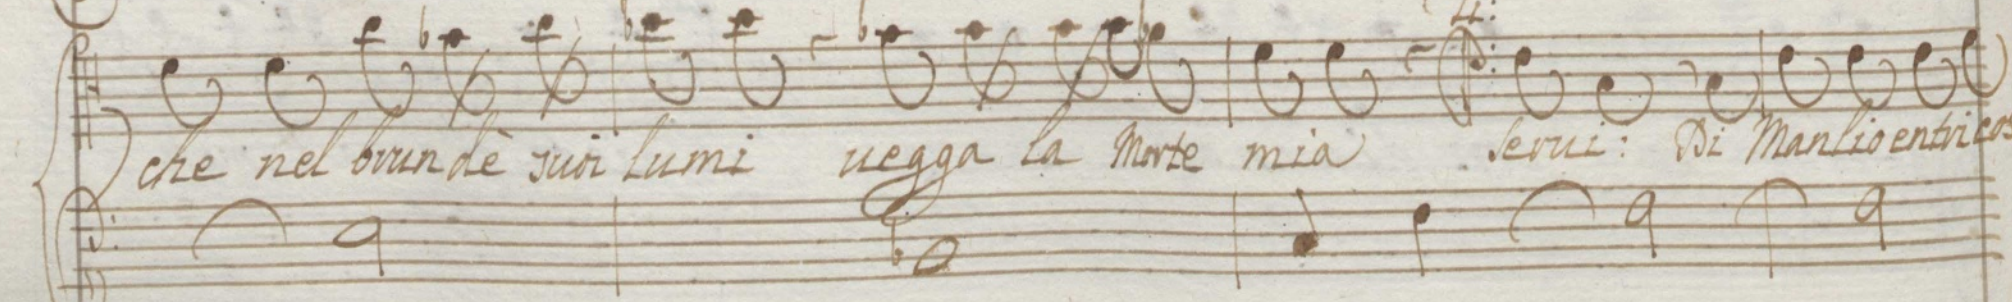 L:
che nel brun dè suoi lumi uegga la Morte mia Serui: Di Manlio entri co